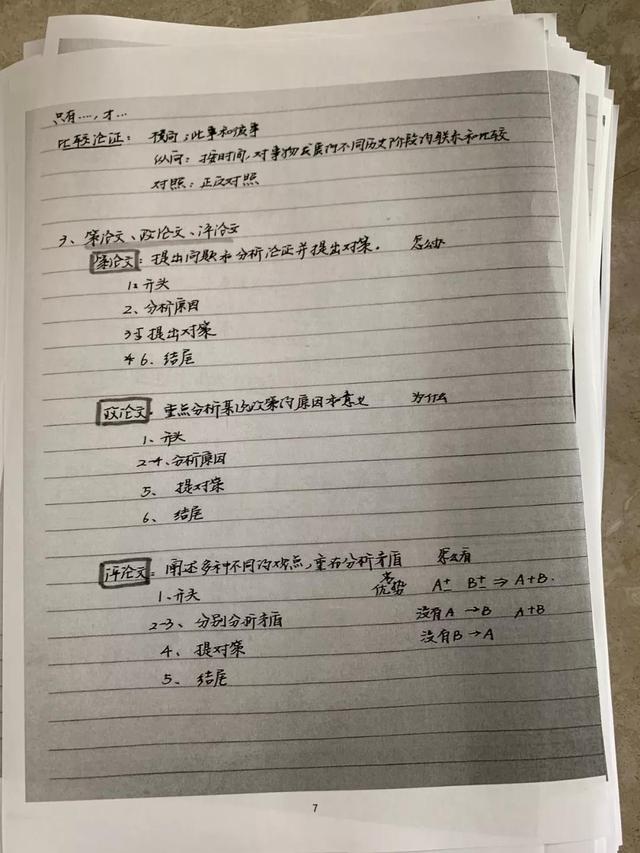 只有……，才…
比较论证： 横向：此事和彼事
纵向：按时间，对事物发展的不同历史阶段的联系和比较
对照：正反对照
3、策论文、政论文、评论文
策论文：提出问题并分析论证并提出对策。 怎么办
1、开头
2、分析原因
3-5 提出对策
6、结尾
政论文：重点分析某改政策的原因和意义 为什么
1、开头
2-4、分析原因
5、提对策
6、结尾
评论文：阐述多种不同的观点，重在分析矛盾 怎么看
1、开头 优势 A± B± ⇒ A+B.
2-3、分别分析矛盾 没有A → B A+B
4、提对策 没有B → A
5、结尾
7